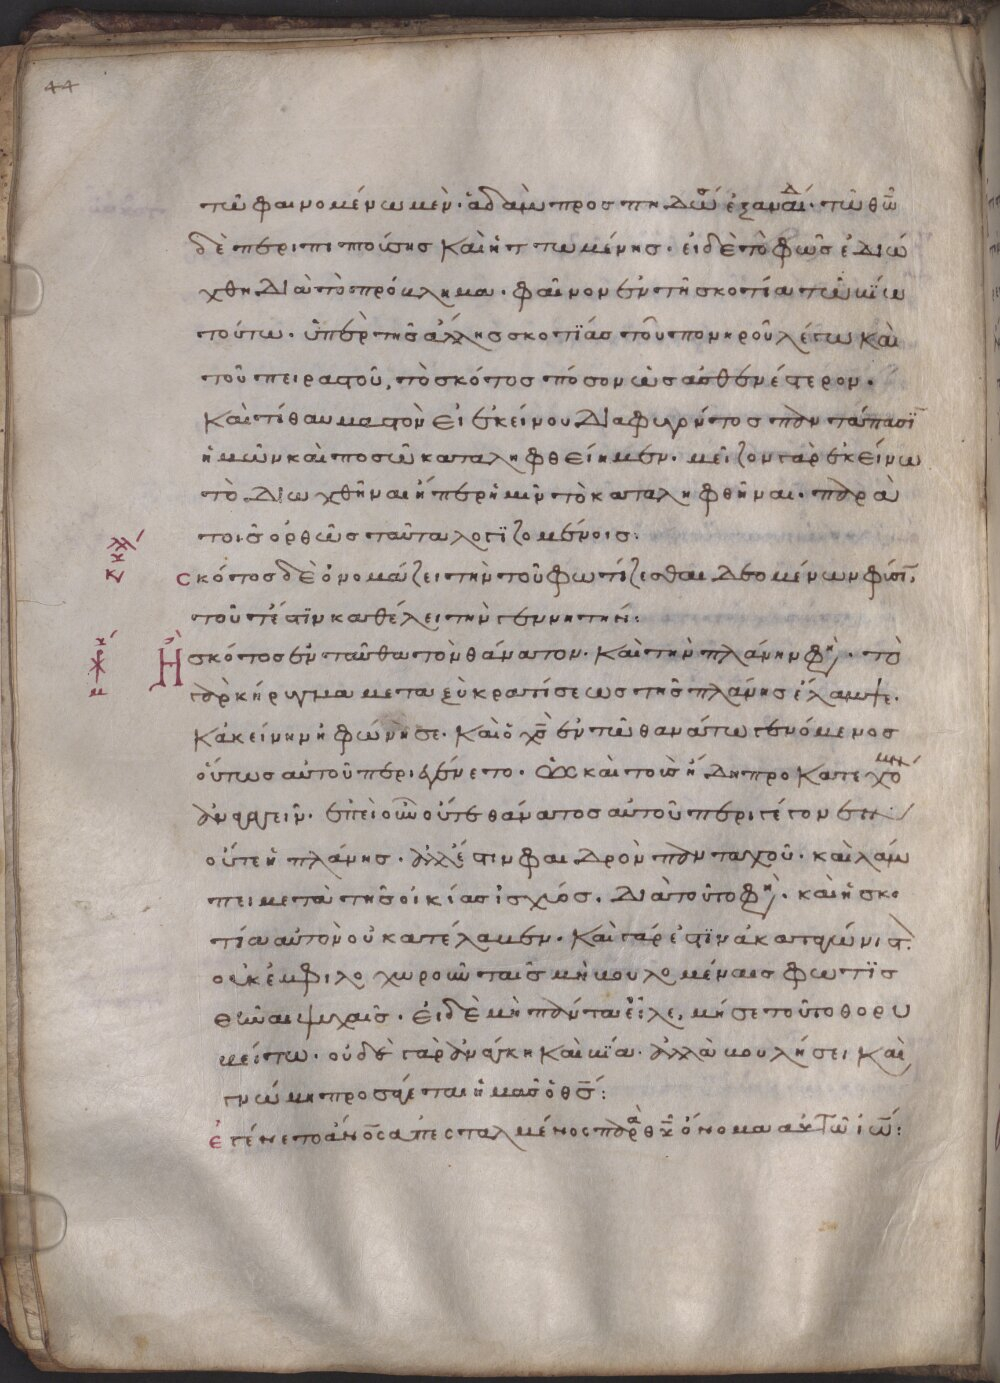 44
τῶ φαινομένω μὲν· ἀδὰμ προσπη τῶ θω
δὲ περιπιπτούσης καὶ ἡττωμένης· εἰ δὲ τὸ φῶς ἐδιώ
χθη διὰ τὸ πρόβλημα· φαῖνον ἐν τῆ σκοτία τῶ βίω
τούτω· ὑπὲρ τῆς ἄλλης σκοτϊάς τοῦ πονηροῦ λέγω καὶ
τοῦ πειρασμοῦ, τὸ σκότος πόσον ὡς ἀσθενέστερον·
Καὶ τί θαυμαστὸν εἰ ἐκείνου διαφυγόντος πανταπασῒ
ἡμῶν καὶ ποσῶ καταληφθείημεν· μεῖζον γὰρ ἐκείνω
τὸ διωχθῆναι ἤπερ ἡμῖν τὸ καταληφθῆναι· παρὰ
τοῖς ὀρθῶς ταῦτα λογϊζομένοις:
σκότος δὲ ὀνομάζει τὴν τοῦ φωτίζεσθαι δεομένων φύσι,
τοῦτέστϊν καθέλει τὴν γεννητήν:
Ἢ σκότος ἐνταῦθα τὸν θάνατον· καὶ τὴν πλάνην φη· τὸ
γὰρ κήρυγμα μεταξὺ κρατίσεως τῆς πλάνης ἔλαμψε·
κἀκείνην ἠφώνησε· καὶ ὁ χς ἐν τῶ θανάτω γενόμενος
οὕτως αὐτοῦ περιεγένετο· ὡς καὶ τοῖς ἤδη προκατεχομένο
ἀναρρεῖν· ἐπεὶ οὖν οὔτε θάνατος αὐτοῦ περιγέγονεν
οὔτε ἡ πλάνης· ἀλλ᾽ ἔστιν φαιδρὸν πανταχοῦ· καὶ λάμ
πει μετὰ τῆς οἰκίας ἰσχύος· διὰ τοῦτο φη· καὶ ἡ σκο
τία αὐτὸν οὐ κατέλαβεν· καὶ γάρ ἐστϊν ἀκαταγώνιστ
οὐκ ἐμφιλοχωροῦν ταῖς μὴ βουλομέναις φωτϊσ
θῆναι ψυχαῖς· εἰ δὲ μὴ πάντα εἷλε, μή σε τοῦτο θορυ
βείτω· οὐδὲ γὰρ ἀνάγκη καὶ βία· ἀλλὰ βουλήσει καὶ
γνώμη προσάγεται ἡμᾶς ὁ θς:
ἐγένετο ἄνος ἀπεσταλμένος παρὰ θυ ὄνομα αὐτῶ ἰω: